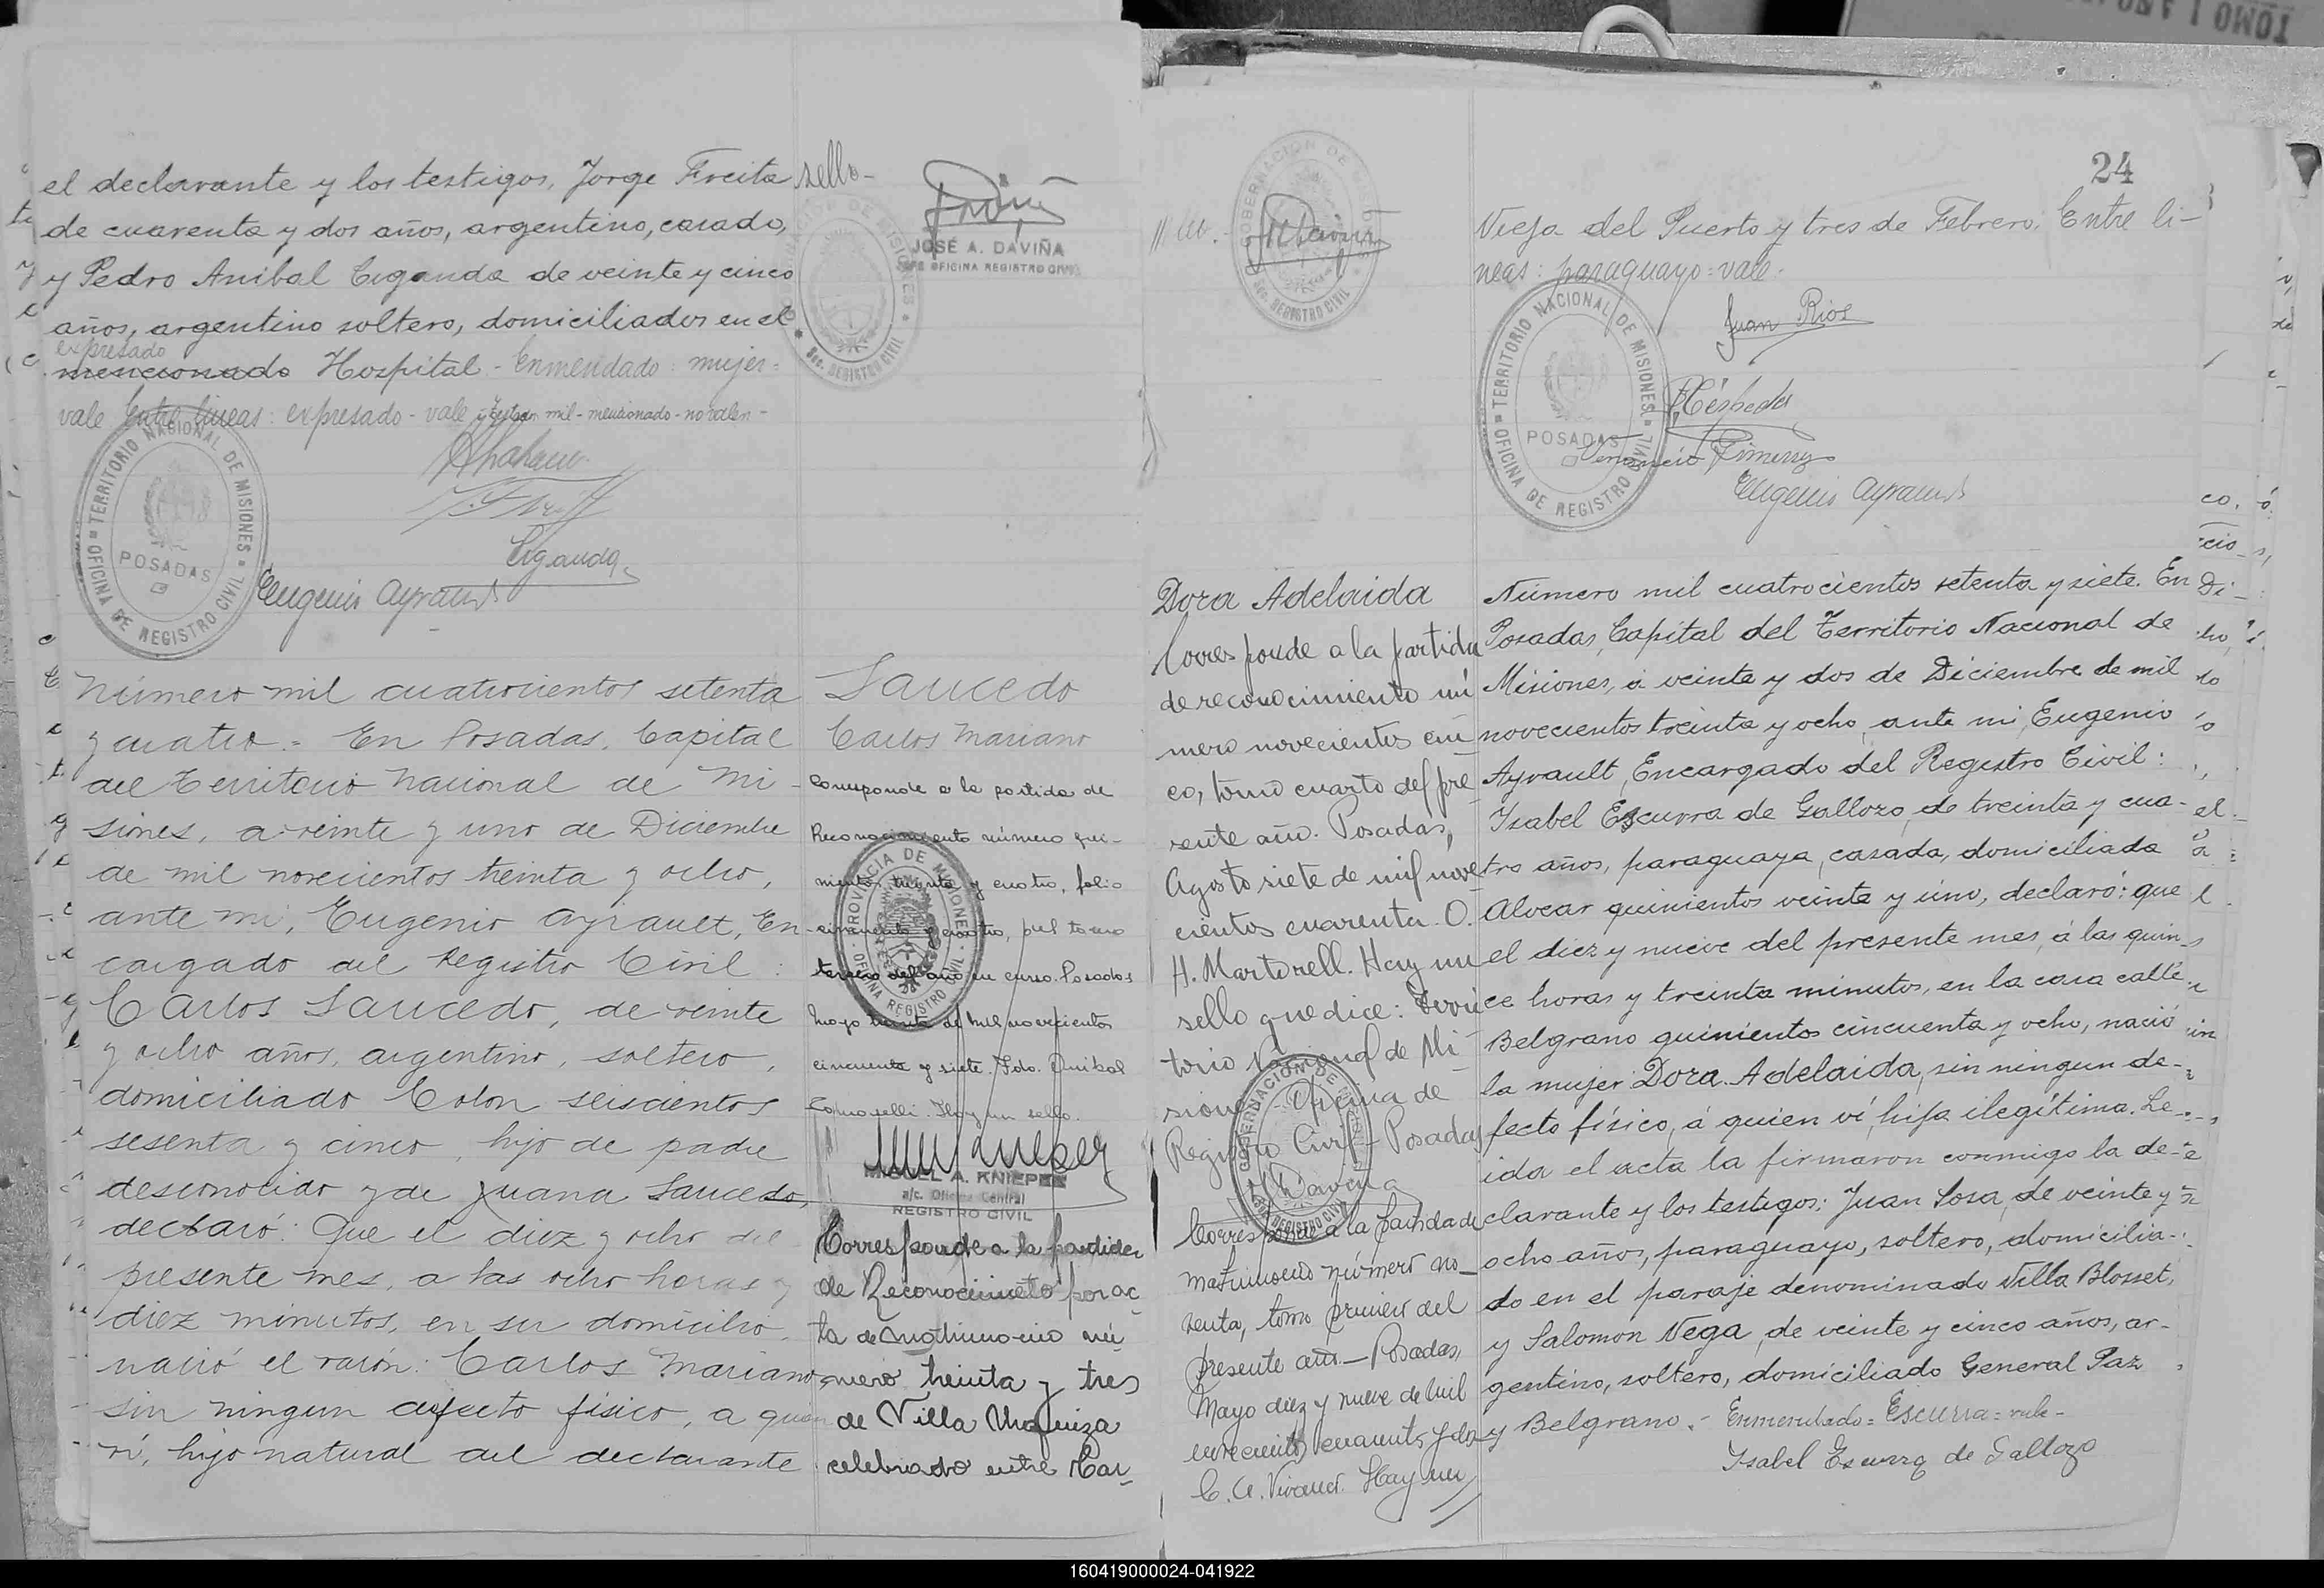 el declarante y los testigos, Jorge Freita
de cuarenta y dos años, argentino, casado,
y Pedro Anibal Ciganda de veinte y cinco
años, argentino soltero, domiciliados en el
expresado
mencionado Hospital - Enmendado: mujer=
vale Entre lineas: expresado - vale y mil - mencionado - no valen -
TERRITORIO NACIONAL DE MISIONES
POSADAS
OFICINA DE REGISTRO CIVIL
Ciganda
Eugenio Ayrault
sello -
JOSÉ A. DAVIÑA
JEFE OFICINA REGISTRO CIVIL
Sec. REGISTRO CIVIL
Número mil cuatrocientos setenta
y cuatro.= En Posadas, Capital
del Territorio Nacional de Mi-
siones, a veinte y uno de Diciembre
de mil novecientos treinta y ocho,
ante mi, Eugenio Ayrault, En-
cargado del Registro Civil:
Carlos Saucedo, de veinte
y ocho años, argentino, soltero,
domiciliado Colon seiscientos
sesenta y cinco, hijo de padre
desconocido y de Juana Saucedo,
declaró: Que el diez y ocho del
presente mes, a las ocho horas y
diez minutos, en su domicilio,
nació el varón: Carlos Mariano
sin ningun defecto físico, a quien
ví, hijo natural del declarante
Saucedo
Carlos Mariano
Corresponde a la partida de
Reconocimiento número qui-
nientos treinta y cuatro, folio
cincuenta y cuatro, del tomo
tercero del año en curso. Posadas
Mayo treinta de mil novecientos
cincuenta y siete. Fdo. Anibal
Hay un sello.
PROVINCIA DE MISIONES
OFICINA REGISTRO CIVIL
MIGUEL A. KNIEPER
a/c. Oficina Central
REGISTRO CIVIL
Corresponde a la partida
de Reconocimiento por ac-
ta de matrimonio nú-
mero treinta y tres
de Villa Urquiza
celebrado entre Car-
24
GOBERNACION DE MISIONES
Sec. REGISTRO CIVIL
Vieja del Puerto y tres de Febrero. Entre li-
neas: paraguayo = vale.
Juan Rios
Céspedes
Venancio Gimenez
Eugenio Ayrault
TERRITORIO NACIONAL DE MISIONES
POSADAS
OFICINA DE REGISTRO CIVIL
Dora Adelaida
Corresponde a la partida
de reconocimiento nú
mero novecientos cin
co, tomo cuarto del pre
sente año. Posadas,
Agosto siete de mil nove
cientos cuarenta. O.
H. Martorell. Hay un
sello que dice: Terri
torio Nacional de Mi
siones - Oficina de
Registro Civil - Posadas
Daviña
Corresponde a la partida de
matrimonio número no-
venta, tomo primero del
presente año - Posadas,
Mayo diez y nueve de mil
novecientos cuarenta y dos
Hay un //
Número mil cuatrocientos setenta y siete. En
Posadas, Capital del Territorio Nacional de
Misiones, á veinte y dos de Diciembre de mil
novecientos treinta y ocho, ante mi, Eugenio
Ayrault, Encargado del Registro Civil:
Isabel Escurra de Gallozo, de treinta y cua-
tro años, paraguaya, casada, domiciliada
Alvear quinientos veinte y uno, declaró: que
el diez y nueve del presente mes, á las quin-
ce horas y treinta minutos, en la casa calle
Belgrano quinientos cincuenta y ocho, nació
la mujer Dora Adelaida, sin ningun de-
fecto físico, á quien ví, hija ilegítima. Le-
ida el acta la firmaron conmigo la de-
clarante y los testigos: Juan Sosa, de veinte y
ocho años, paraguayo, soltero, domicilia-
do en el paraje denominado Villa Blosset,
y Salomon Vega, de veinte y cinco años, ar-
gentino, soltero, domiciliado General Paz
y Belgrano. - Enmendado = Escurra = vale -
Isabel Escurra de Gallozo
160419000024-041922